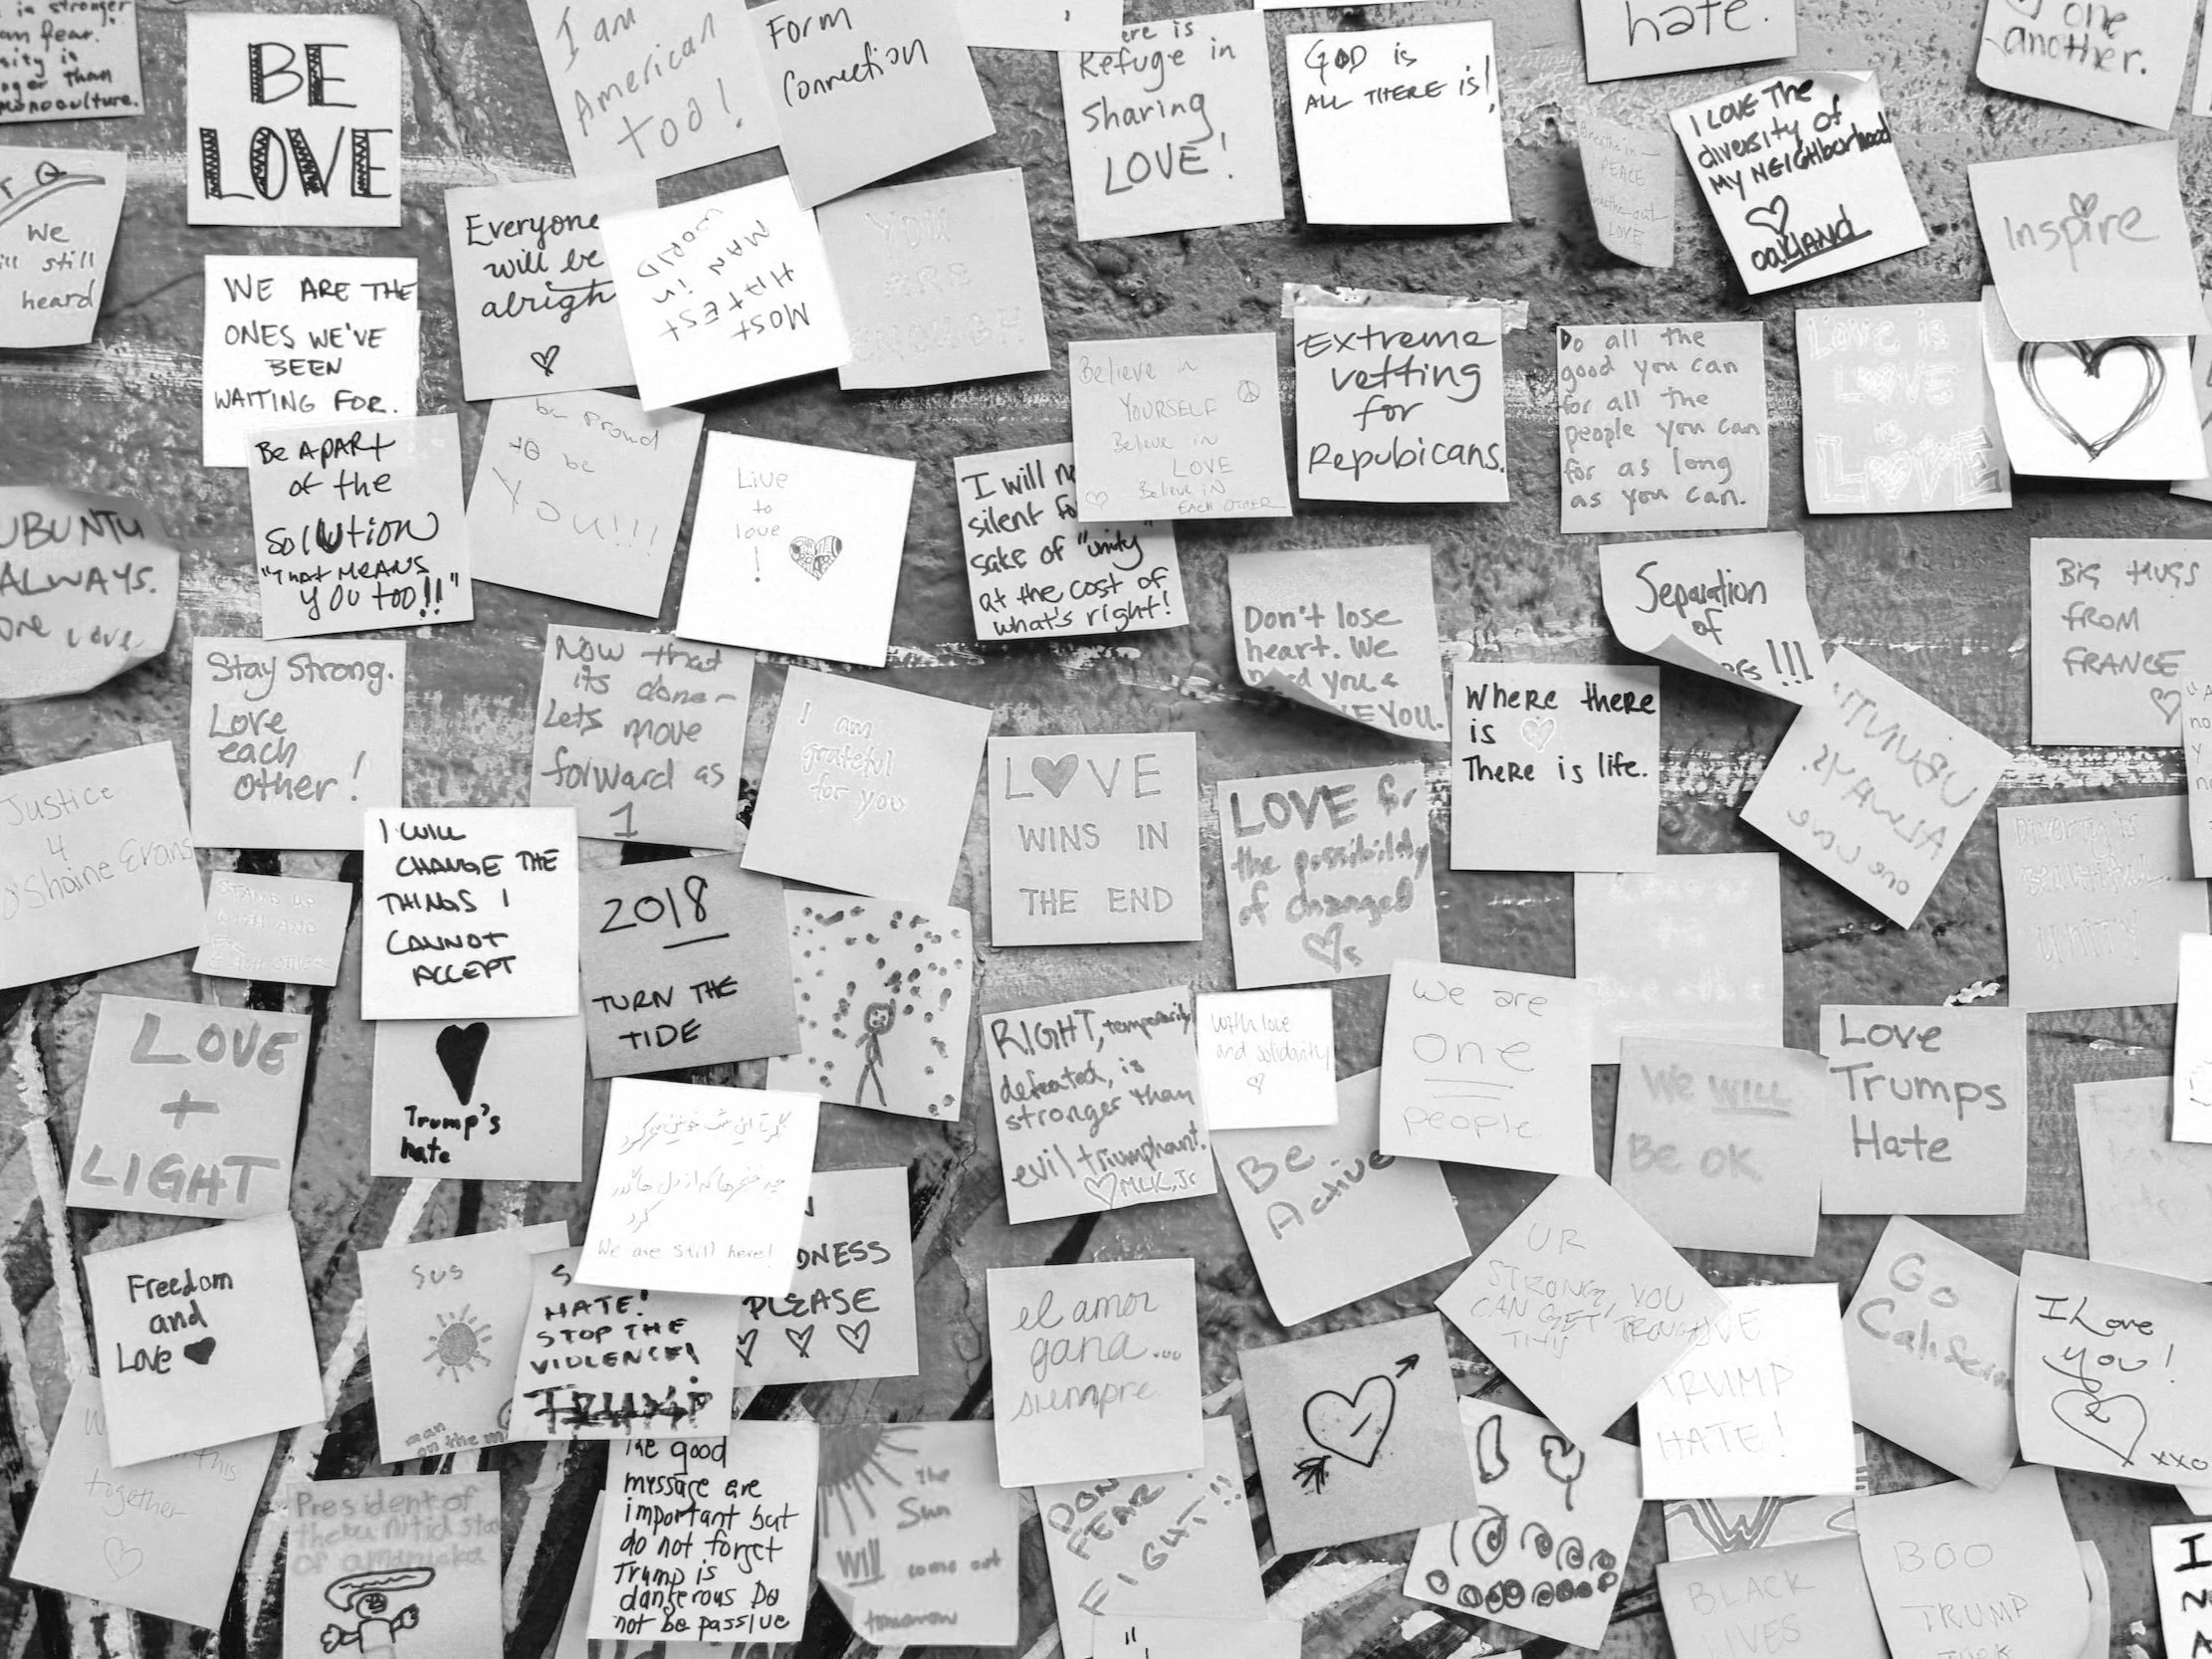 is stronger
fear.
is
than
monoculture.
BE
LOVE
I am
American
too!
Form
Connection
is
Refuge in
Sharing
LOVE!
GOD is
ALL THERE IS!
hate.
one
another.
I LOVE The
diversity of
MY NEIGHborhood
OAKLAND
Breathe in
PEACE
breathe out
LOVE
Inspire
We
still
heard
WE ARE THE
ONES WE'VE
BEEN
WAITING FOR.
Everyone
will be
alright
MOST
HATEST
MAN IN
WORLD
YOU
ARE
ENOUGH
Believe in
YOURSELF
Believe in
LOVE
Believe IN
EACH OTHER
Extreme
vetting
for
Repubicans.
Do all the
good you can
for all the
people you can
for as long
as you can.
Love is
LOVE
is
LOVE
Be APART
of the
SOLUTION
"That MEANS
YOU TOO!!"
be proud
to be
YOU!!!
Live
to
love
!
I will
silent
sake of "unity"
at the cost of
what's right!
UBUNTU
ALWAYS.
one love
Don't lose
heart. We
you &
YOU.
Separation
of
!!!
BIG HUGS
FROM
FRANCE
Stay Strong.
Love
each
other!
Now that
its done-
Lets move
forward as
1
I am
grateful
for you
LOVE
WINS IN
THE END
LOVE for
the possibility
of changed
Where there
is
There is life.
UBUNTU
ALWAYS.
one love
Diversity is
BEAUTIFUL.
UNITY
Justice
4
O'Shaine Evans
STAND UP
WITH AND
FOR
EACH OTHER
I WILL
CHANGE THE
THINGS I
CANNOT
ACCEPT
2018
TURN THE
TIDE
LOVE
+
LIGHT
Trump's
hate
RIGHT, temporarily
defeated, is
stronger than
evil triumphant.
MLK, Jr
With love
and solidarity
We are
one
people
We WILL
Be OK
Love
Trumps
Hate
We are still here!
Be
Active
Freedom
and
Love
SUS
man
on the
HATE!
STOP THE
VIOLENCE!
TRUMP
PLEASE
el amor
gana...
siempre
UR
STRONG, YOU
CAN GET TROUGH
THIS
TRUMP
HATE!
Go
I Love
you!
xxo
together
President of
the
of
The good
myssage are
important but
do not forget
Trump is
dangerous Do
not be passive
The
Sun
Will come out
tomorrow
FEAR
FIGHT!!
BLACK
LIVES
BOO
TRUMP